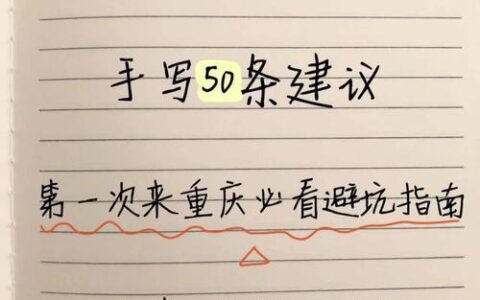 手写50条建议
第一次来重庆必看避坑指南